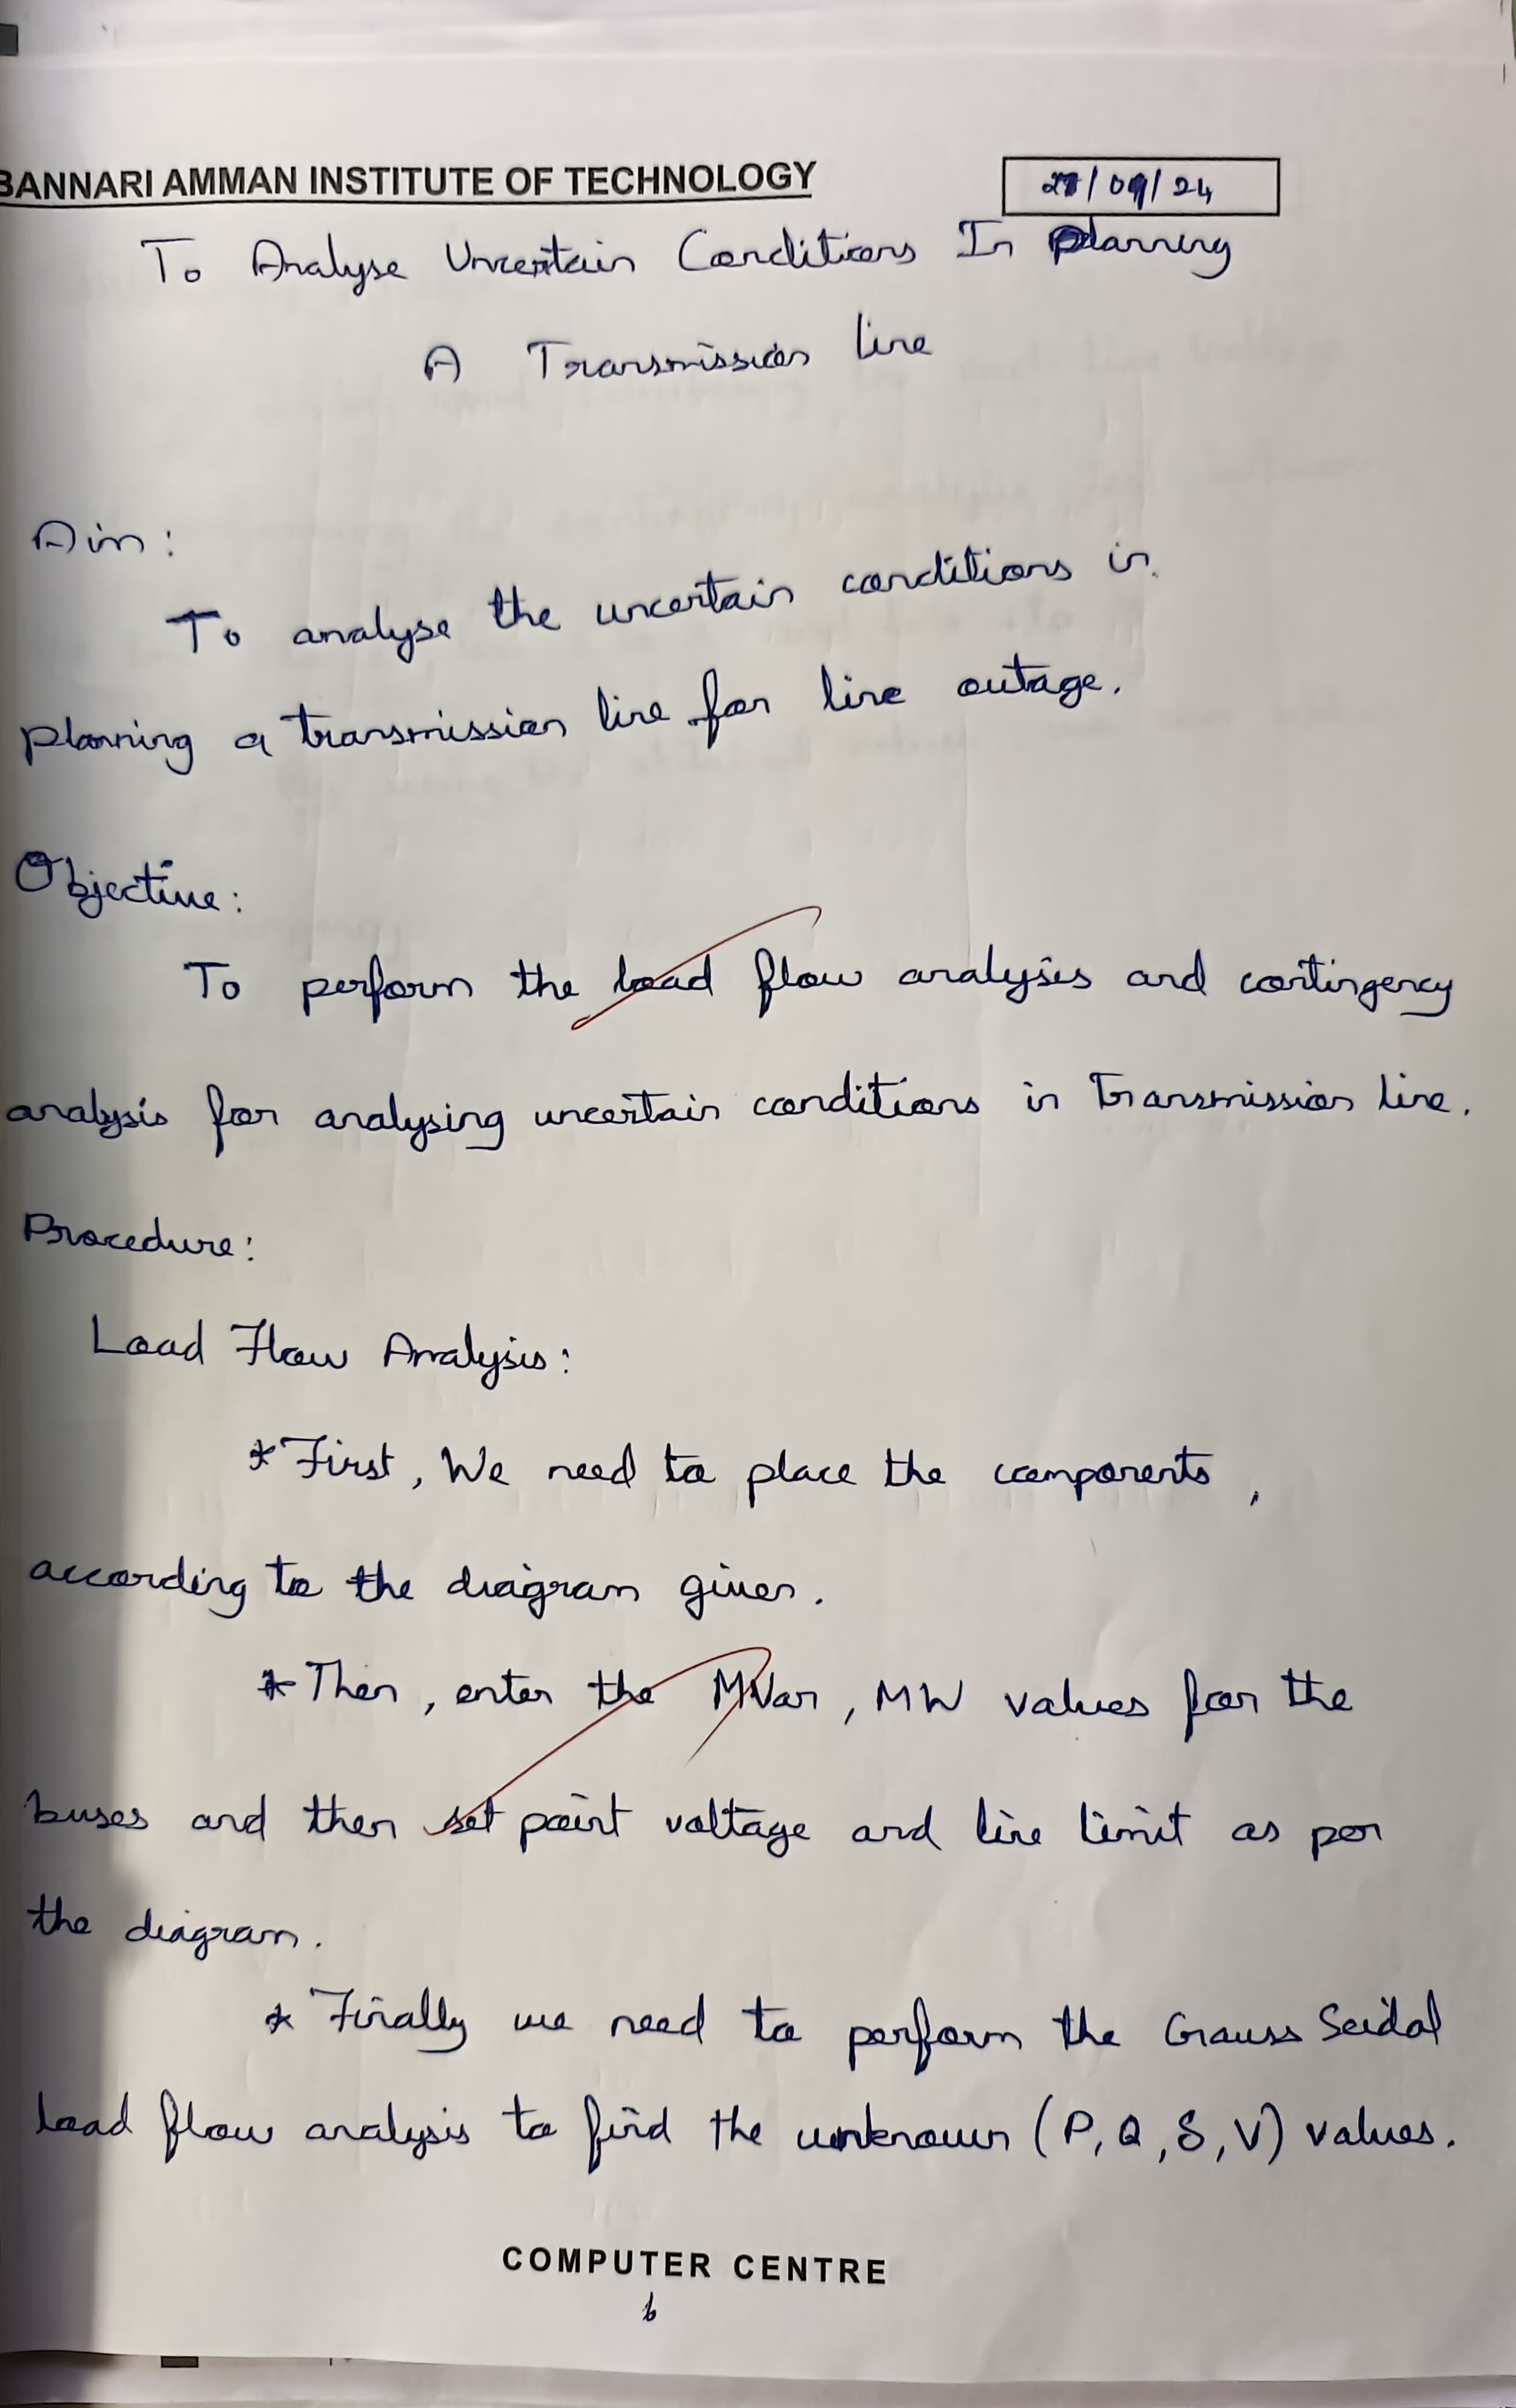 BANNARI AMMAN INSTITUTE OF TECHNOLOGY
/09/24
To Analyse Uncertain Conditions In planning
A Transmission line
Aim:
To analyse the uncertain conditions in
planning a transmission line for line outage.
Objective:
To perform the load flow analysis and contingency
analysis for analysing uncertain conditions in transmission line.
Procedure:
Load Flow Analysis:
* First, We need to place the components,
according to the diagram given.
* Then, enter the MVar, MW values for the
buses and then set point voltage and line limit as per
the diagram.
* Finally we need to perform the Gauss Seidal
load flow analysis to find the unknown (P, Q, δ, V) values.
COMPUTER CENTRE